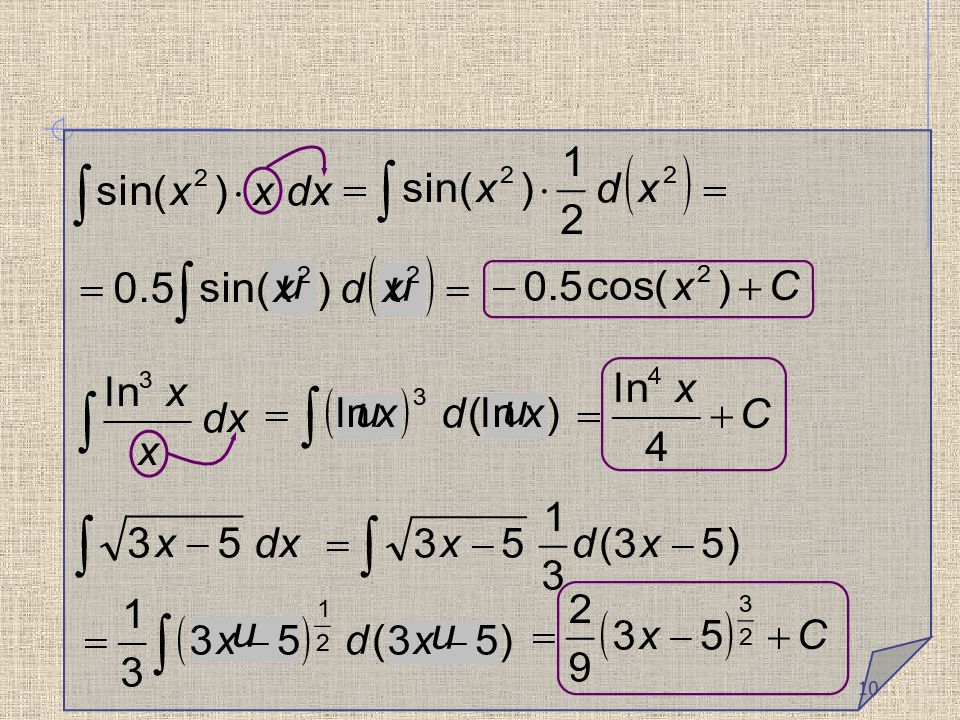 ∫ sin(x²) · x dx = ∫ sin(x²) · 1/2 d(x²) =
= 0.5 ∫ sin(x²) d(x²) = − 0.5 cos(x²) + C
∫ ln³ x / x dx = ∫ (ln x)³ d(ln x) = ln⁴ x / 4 + C
∫ √(3x − 5) dx = ∫ √(3x − 5) 1/3 d(3x − 5)
= 1/3 ∫ (3x − 5)^(1/2) d(3x − 5) = 2/9 (3x − 5)^(3/2) + C
u u
u u
u u
10